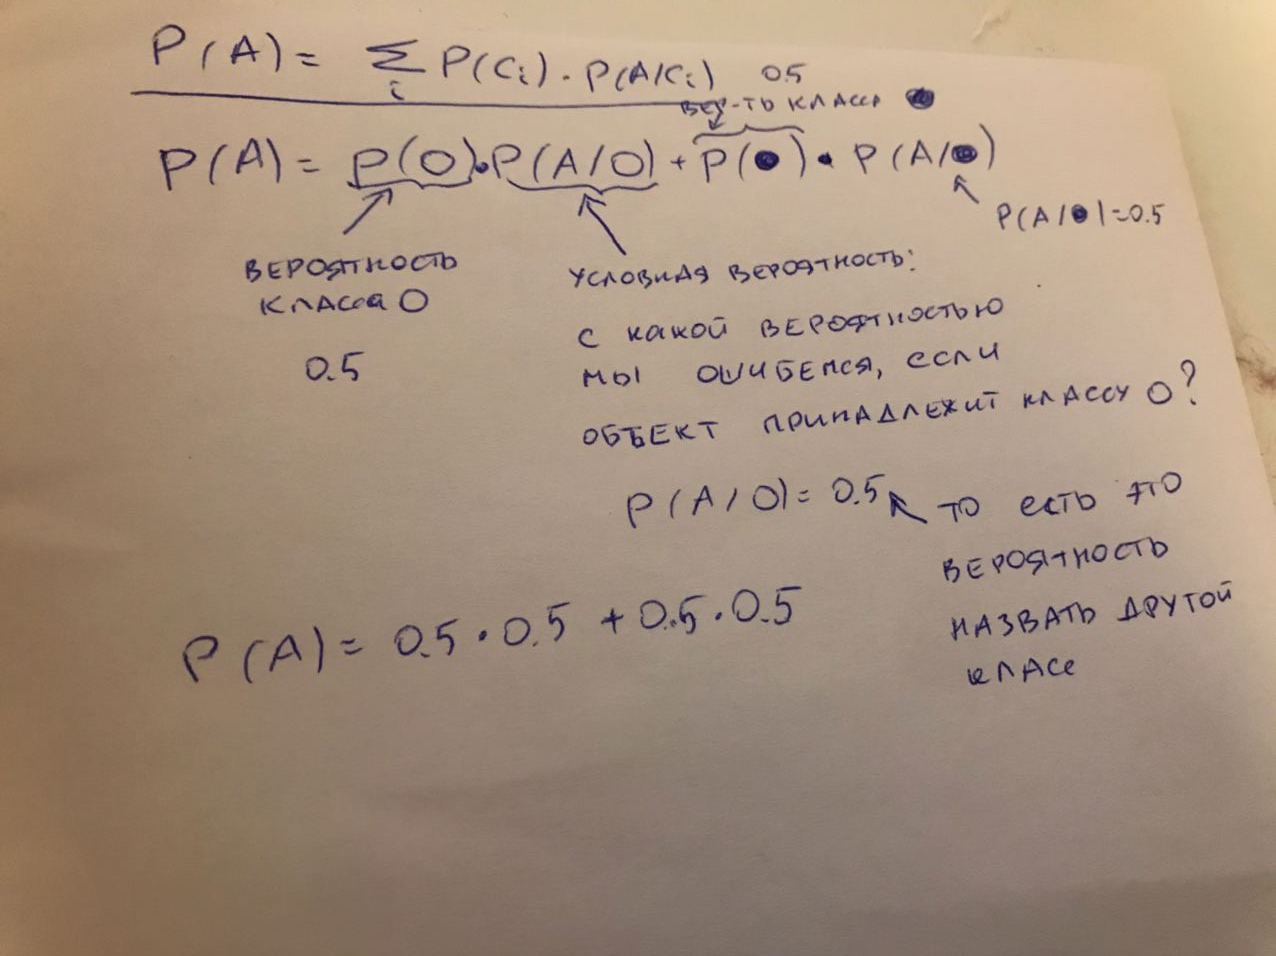 P(A) = Σ P(Ci) · P(A/Ci) 0.5
i
ВЕР-ТЬ КЛАССА ●
P(A) = P(O)·P(A/O) + P(●) · P(A/●)
P(A/●)=0.5
ВЕРОЯТНОСТЬ
КЛАССА O
0.5
УСЛОВНАЯ ВЕРОЯТНОСТЬ:
С КАКОЙ ВЕРОЯТНОСТЬЮ
МЫ ОШИБЕМСЯ, ЕСЛИ
ОБЪЕКТ ПРИНАДЛЕЖИТ КЛАССУ O?
P(A/O) = 0.5
ТО ЕСТЬ ЭТО
ВЕРОЯТНОСТЬ
НАЗВАТЬ ДРУГОЙ
КЛАСС
P(A) = 0.5 · 0.5 + 0.5 · 0.5